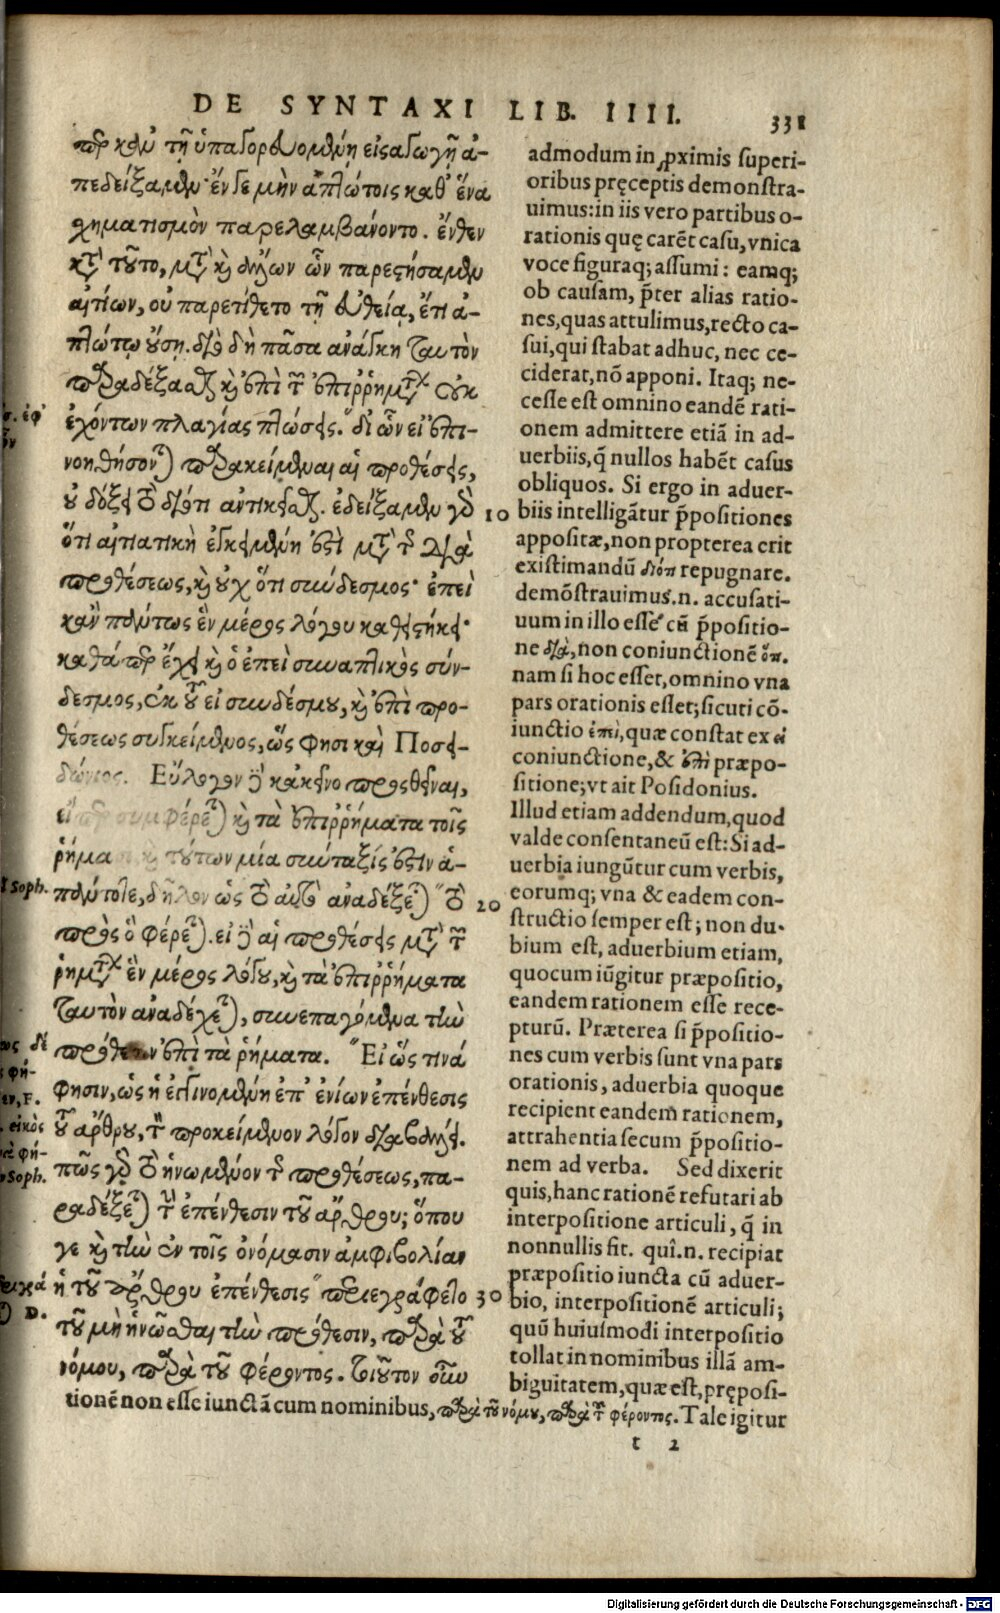 DE SYNTAXI LIB. IIII. 331
περ κἀν τῇ ὑπαγορευομένῃ εἰσαγωγῇ ἀ-
πεδείξαμεν· ἐν δὲ μὴν ἀπτώτοις καθ᾽ ἕνα
χηματισμὸν παρελαμβάνοντο. ἔνθεν
κατὰ τοῦτο, μετὰ καὶ ἄλλων ὧν παρεστήσαμεν
αἰτίων, οὐ παρετίθετο τῇ εὐθείᾳ, ἔτι ἀ-
πτώτῳ οὔσῃ. διὸ δὴ πᾶσα ἀνάγκη ταυτὸν
παραδέξασθαι καὶ ἐπὶ τῶν ἐπιῤῥημάτων οὐκ
ἐχόντων πλαγίας πτώσεις. "δι᾽ ὧν εἰ ἐπι-
νοηθήσονται παρακείμεναι αἱ προθέσεις,
οὐ δόξει τὸ διότι ἀντικεῖσθαι. ἐδείξαμεν γὰρ
ὅτι αἰτιατικὴ ἐγκειμένη ἐστὶ μετὰ τῆς διὰ
προθέσεως, καὶ οὐχ ὅτι σύνδεσμος· ἐπεὶ
κἂν πάντως ἓν μέρος λόγου καθεστήκει·
καθάπερ ἔχει καὶ ὁ ἐπεὶ συναπτικὸς σύν-
δεσμος, ἐκ τοῦ εἰ συνδέσμου, καὶ ἐπὶ προ-
θέσεως συγκείμενος, ὥς φησι καὶ Ποσει-
δώνιος. Εὔλογον δὲ κἀκεῖνο προσθεῖναι,
εἴπερ συμφέρεται καὶ τὰ ἐπιῤῥήματα τοῖς
ῥήμα καὶ τούτων μία σύνταξίς ἐστιν ἁ-
πάντοτε, δῆλον ὡς τὸ αὐτὸ ἀναδέξεται "τὸ
πρὸς ὃ φέρεται. εἰ δὲ αἱ προθέσεις μετὰ τῶν
ῥημάτων ἓν μέρος λόγου, καὶ τὰ ἐπιῤῥήματα
ταυτὸν ἀναδέχεται, συνεπαγόμενα τὴν
πρόθεσιν ἐπὶ τὰ ῥήματα. "Εἰ ὥς τινά
φησιν, ὡς ἡ ἐγγινομένη ἐπ᾽ ἐνίων ἐπένθεσις
τοῦ ἄρθρου, τὸν προκείμενον λόγον διαβάλλει.
πῶς γὰρ τὸ ἡνωμένον τῆς προθέσεως, πα-
ραδέξεται τὴν ἐπένθεσιν τοῦ ἄρθρου; ὅπου
γε καὶ τὴν ἐν τοῖς ὀνόμασιν ἀμφιβολίαν
ἡ τοῦ ἄρθρου ἐπένθεσις "περιεγράφετο
τοῦ μὴ ἡνῶσθαι τὴν πρόθεσιν, παρὰ τοῦ
νόμου, παρὰ τοῦ φέροντος. Τοιοῦτον οὖν
Soph.
F.
εἰκὸς
Soph.
D.
10
20
30
admodum in proximis superi-
oribus pręceptis demonstra-
uimus: in iis vero partibus o-
rationis quę carēt casu, vnica
voce figuraq; assumi: eamq;
ob causam, p̄ter alias ratio-
nes, quas attulimus, recto ca-
sui, qui stabat adhuc, nec ce-
ciderat, nō apponi. Itaq; ne-
cesse est omnino eandē rati-
onem admittere etiā in ad-
uerbiis, q̄ nullos habēt casus
obliquos. Si ergo in aduer-
biis intelligātur p̄positiones
appositæ, non propterea erit
existimandū διότι repugnare.
demōstrauimus.n. accusati-
uum in illo esse cū p̄positio-
ne διὰ, non coniunctionē ὅτι.
nam si hoc esset, omnino vna
pars orationis esset; sicuti cō-
iunctio ἐπεὶ, quæ constat ex εἰ
coniunctione, & ἐπὶ præpo-
sitione; vt ait Posidonius.
Illud etiam addendum, quod
valde consentaneū est: Si ad-
uerbia iungūtur cum verbis,
eorumq; vna & eadem con-
structio semper est; non du-
bium est, aduerbium etiam,
quocum iūgitur præpositio,
eandem rationem esse rece-
pturū. Præterea si p̄positio-
nes cum verbis sunt vna pars
orationis, aduerbia quoque
recipient eandem rationem,
attrahentia secum p̄positio-
nem ad verba. Sed dixerit
quis, hanc rationē refutari ab
interpositione articuli, q̄ in
nonnullis fit. quî.n. recipiat
præpositio iuncta cū aduer-
bio, interpositionē articuli;
quū huiusmodi interpositio
tollat in nominibus illā am-
biguitatem, quæ est, pręposi-
tionē non esse iunctā cum nominibus, παρὰ τοῦ νόμου, παρὰ τοῦ φέροντος. Tale igitur
t 2
Digitalisierung gefördert durch die Deutsche Forschungsgemeinschaft - DFG